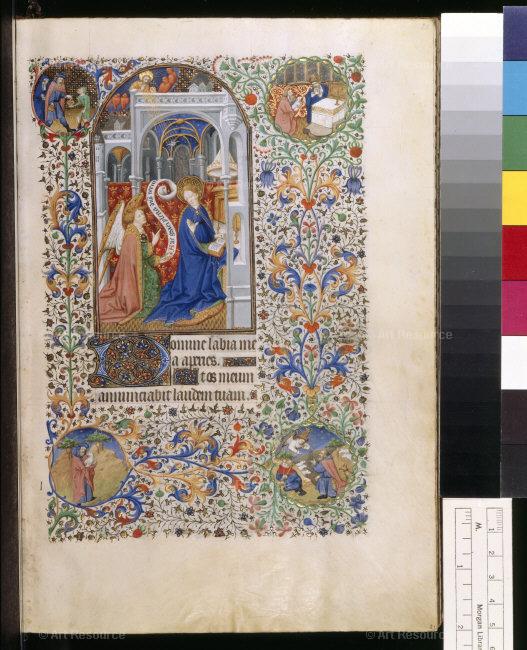 Domine labia me
a aperies.
Et os meum
annunciabit laudem tuam.
© Art Resource
© Art Resource
© Art Resource
© Art Resource
M.
1
2
3
4
5
6
1
2
Morgan Libra